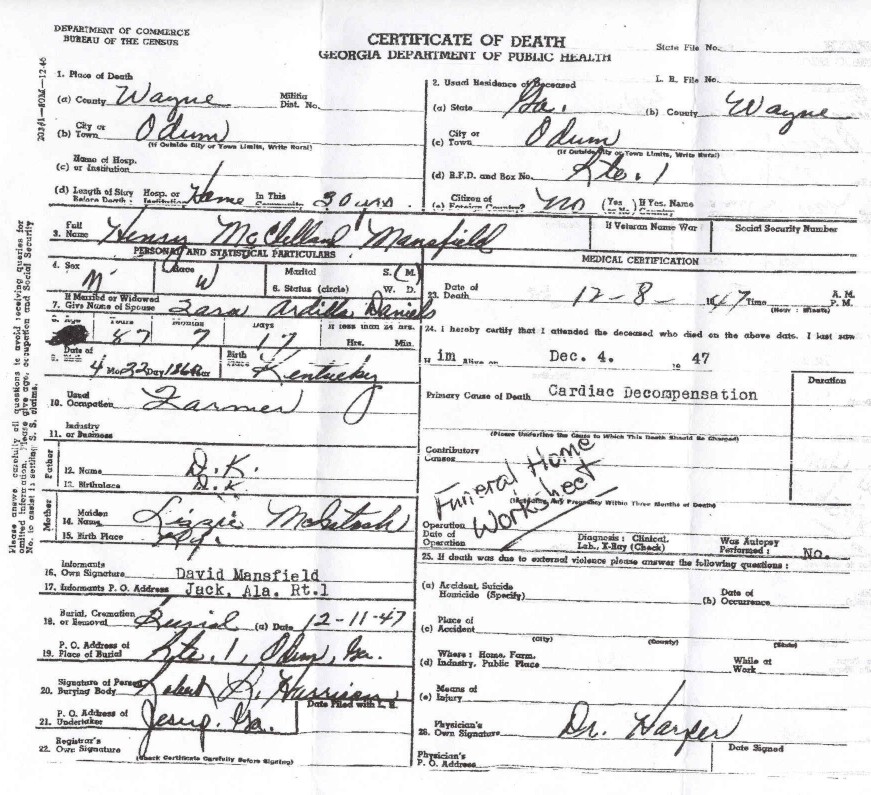 DEPARTMENT OF COMMERCE
BUREAU OF THE CENSUS
CERTIFICATE OF DEATH
GEORGIA DEPARTMENT OF PUBLIC HEALTH
State File No.
1. Place of Death
2. Usual Residence of Deceased
L. R. File No.
(a) County Wayne Militia Dist. No.
(a) State Ga. (b) County Wayne
(b) City or Town Odum
(If Outside City or Town Limits, Write Rural)
(c) City or Town Odum
(If Outside City or Town Limits, Write Rural)
(c) Name of Hosp. or Institution
(d) R.F.D. and Box No. Rte. 1
(d) Length of Stay Before Death: Hosp. or Institution Home In This Community 30 yrs.
(e) Citizen of Foreign Country? No (Yes or No) If Yes, Name Country
3. Full Name Henry McClelland Mansfield
If Veteran Name War:
Social Security Number
PERSONAL AND STATISTICAL PARTICULARS
MEDICAL CERTIFICATION
4. Sex M Race W Marital 6. Status (circle) S. M. W. D.
23. Date of Death 12-8- 1947 Time A. M. P. M.
(Hour : Minute)
If Married or Widowed
7. Give Name of Spouse Zara Ardilla Daniels
8. Age Years 87 Months 7 Days 17 If less than 24 hrs. Hrs. Min.
24. I hereby certify that I attended the deceased who died on the above date. I last saw
H im Alive on Dec. 4. 19 47
Date of 4 Mo 22 Day Year Birth Place Kentucky
Duration
Primary Cause of Death Cardiac Decompensation
10. Usual Occupation Farmer
(Please Underline the Cause to Which This Death Should Be Charged)
11. Industry or Business
Contributory Causes
Father
12. Name D. K.
13. Birthplace D. K
Funeral Home Worksheet
(Including Any Pregnancy Within Three Months of Death)
Mother
14. Maiden Name Lizzie McIntosh
15. Birth Place Ky.
Operation
Date of Operation
Diagnosis: Clinical. Lab., X-Ray (Check)
Was Autopsy Performed: No.
25. If death was due to external violence please answer the following questions:
16. Informants Own Signature David Mansfield
17. Informants P. O. Address Jack, Ala. Rt.1
(a) Accident, Suicide Homicide (Specify)
(b) Date of Occurrence
18. Burial, Cremation or Removal Burial (a) Date 12-11-47
(c) Place of Accident
(City) (County) (State)
19. P. O. Address of Place of Burial Rte. 1, Odum, Ga.
(d) Where: Home, Farm, Industry, Public Place
While at Work
20. Signature of Person Burying Body Robert K. Harrison
Date Filed with L. R.
(e) Means of Injury
21. P. O. Address of Undertaker Jesup, Ga.
26. Physician's Own Signature Dr. Harper
22. Registrar's Own Signature
(Check Certificate Carefully Before Signing)
Physician's P. O. Address
Date Signed
Please answer carefully all questions to avoid receiving queries for
omitted information. Please give age, occupation and Social Security
No. to assist in settling S. S. claims.